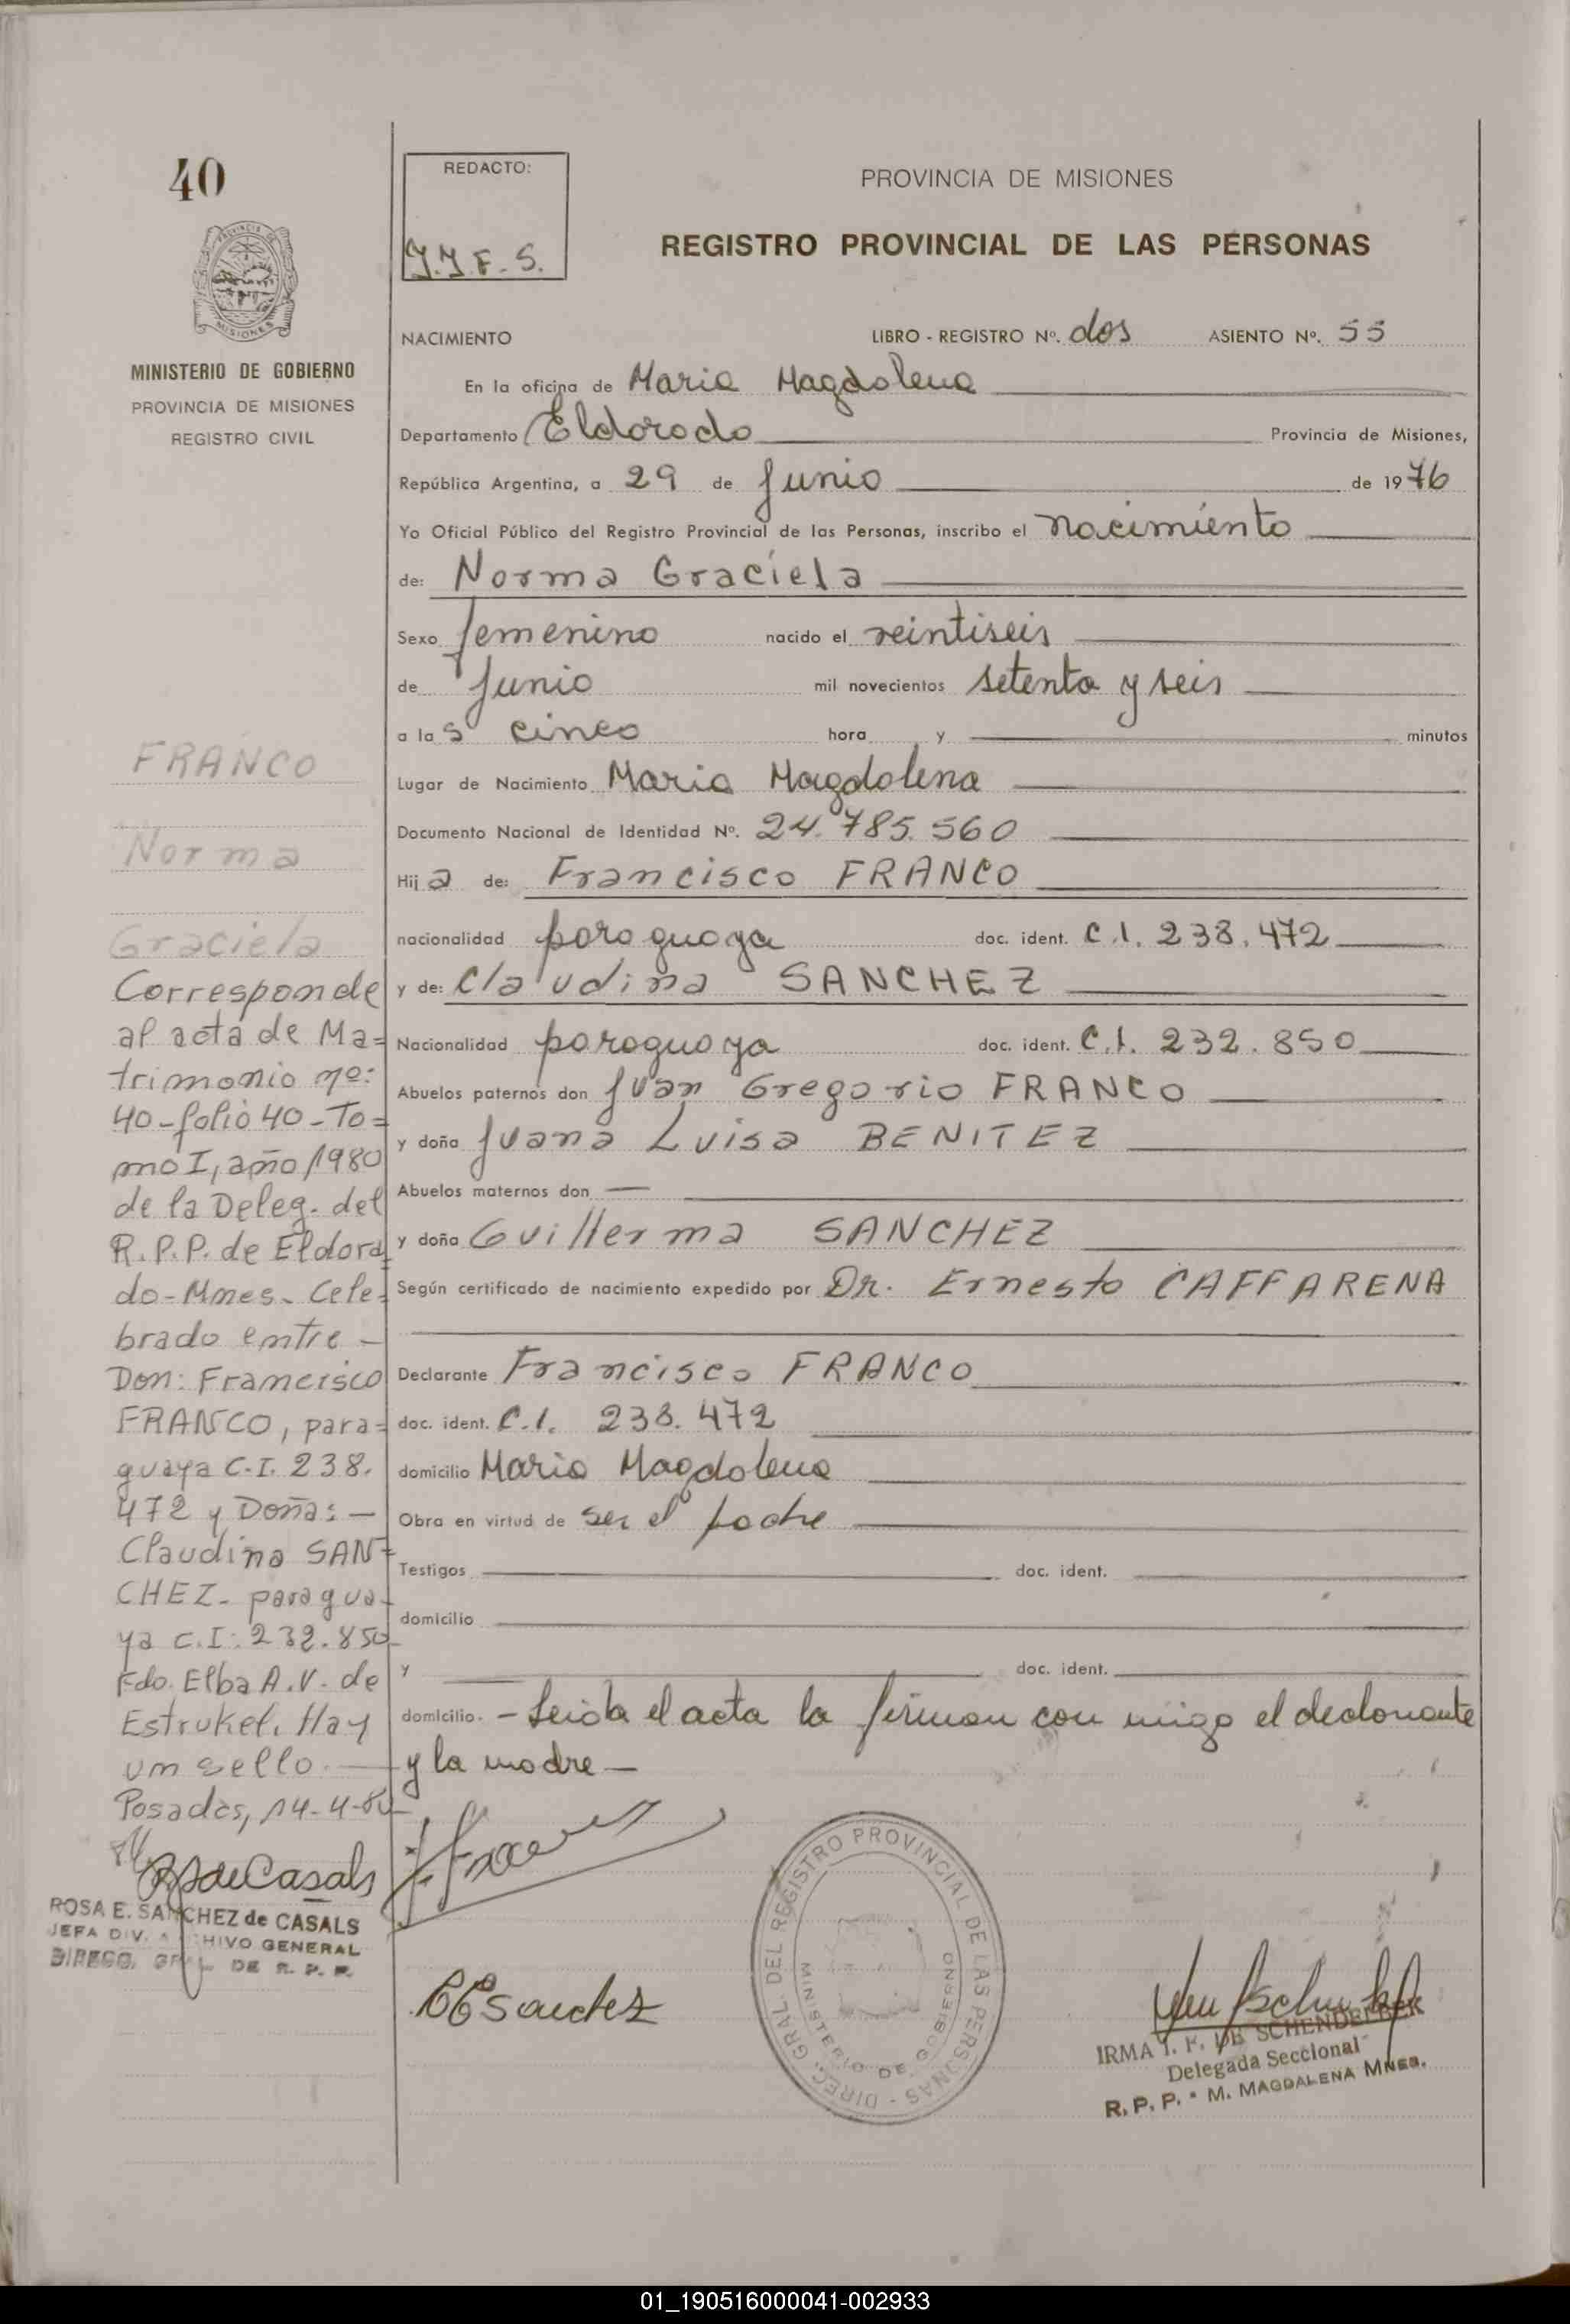 40
PROVINCIA DE
MISIONES
MINISTERIO DE GOBIERNO
PROVINCIA DE MISIONES
REGISTRO CIVIL
FRANCO
Norma
Graciela
Corresponde
al acta de Ma=
trimonio nº:
40-folio 40-To=
mo I, año 1980
de la Deleg. del
R.P.P. de Eldora=
do-Mnes. Cele=
brado entre -
Don: Francisco
FRANCO, para=
guaya C.I. 238.
472 y Doña: -
Claudina SAN=
CHEZ- paragua-
ya C.I: 232.850-
Fdo. Elba A.V. de
Estrukel. Hay
un sello. -
Posadas, 14-4-80-
RSdeCasals
ROSA E. SANCHEZ de CASALS
JEFA DIV. ARCHIVO GENERAL
DIRECC. GRAL. DE R. P. P.
REDACTO:
J.J.F.S.
PROVINCIA DE MISIONES
REGISTRO PROVINCIAL DE LAS PERSONAS
NACIMIENTO LIBRO - REGISTRO Nº. dos ASIENTO Nº. 55
En la oficina de Maria Magdalena
Departamento Eldorado Provincia de Misiones,
República Argentina, a 29 de Junio de 1976
Yo Oficial Público del Registro Provincial de las Personas, inscribo el nacimiento
de: Norma Graciela
Sexo femenino nacido el veintiseis
de Junio mil novecientos setenta y seis
a las cinco hora y minutos
Lugar de Nacimiento Maria Magdalena
Documento Nacional de Identidad Nº. 24.785.560
Hija de: Francisco FRANCO
nacionalidad paraguaya doc. ident. C.I. 238.472
y de: Claudina SANCHEZ
Nacionalidad paraguaya doc. ident. C.I. 232.850
Abuelos paternos don Juan Gregorio FRANCO
y doña Juana Luisa BENITEZ
Abuelos maternos don —
y doña Guillerma SANCHEZ
Según certificado de nacimiento expedido por Dr. Ernesto CAFFARENA
Declarante Francisco FRANCO
doc. ident. C.I. 238.472
domicilio Maria Magdalena
Obra en virtud de ser el padre
Testigos doc. ident.
domicilio
y doc. ident.
domicilio. - Leida el acta la firman con migo el declarante
y la madre -
CCSanchez
DIREC. GRAL. DEL REGISTRO PROVINCIAL DE LAS PERSONAS -
MINISTERIO DE GOBIERNO
IRMA I. F. DE SCHENDELBEK
Delegada Seccional
R. P. P. - M. MAGDALENA MNES.
01_190516000041-002933